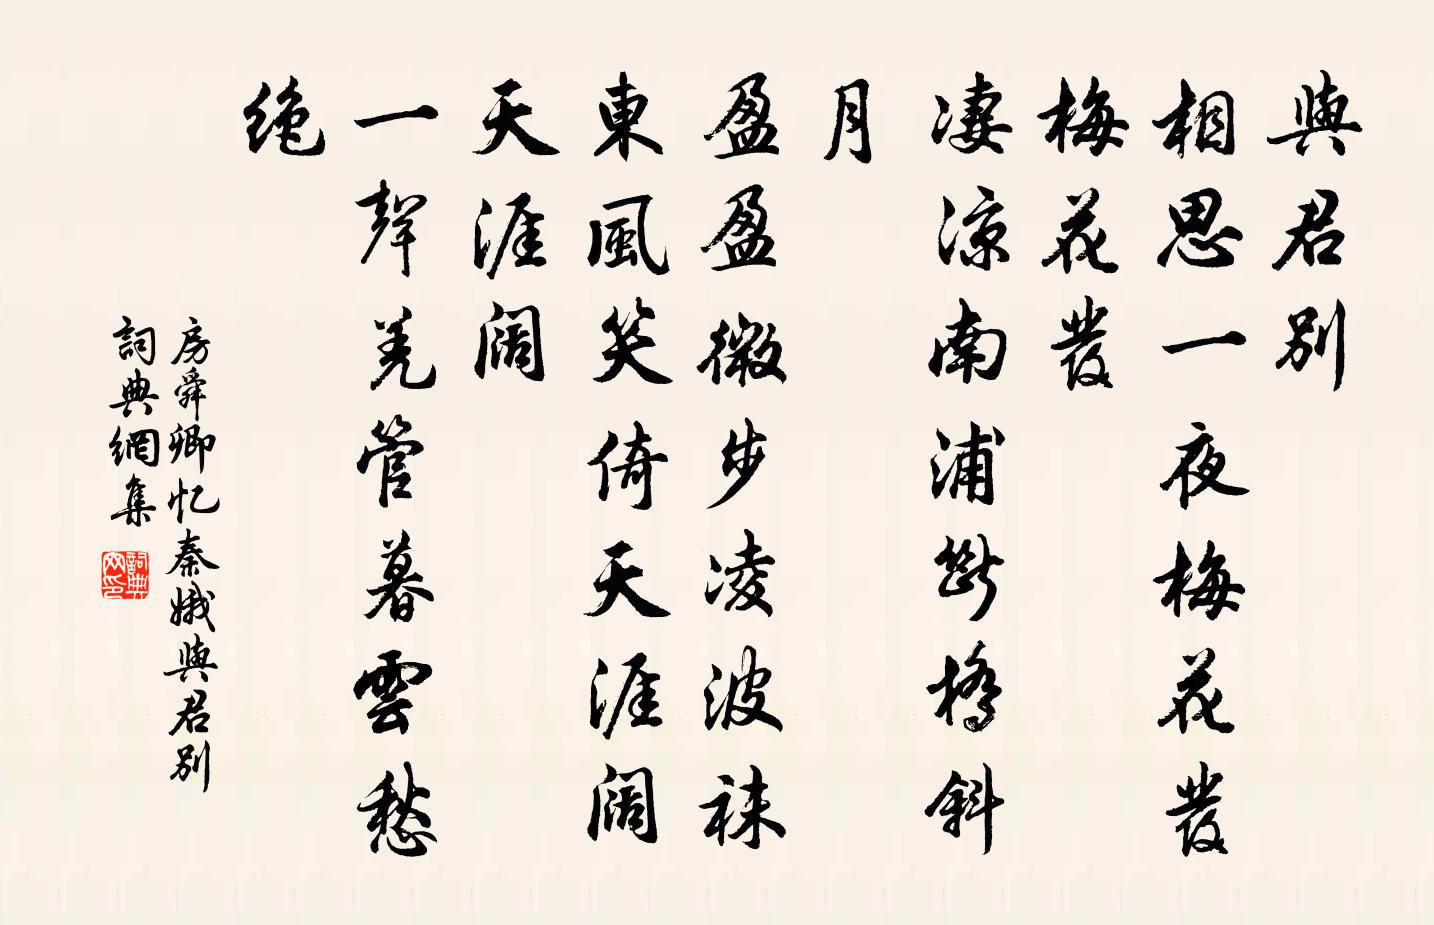 與君别
相思一夜梅花發
梅花發
凄涼南浦斷橋斜
月
盈盈微步凌波袜
東風笑倚天涯阔
天涯阔
一聲羌管暮雲愁
绝
房舜卿忆秦娥與君别
詞典網集
詞典网印